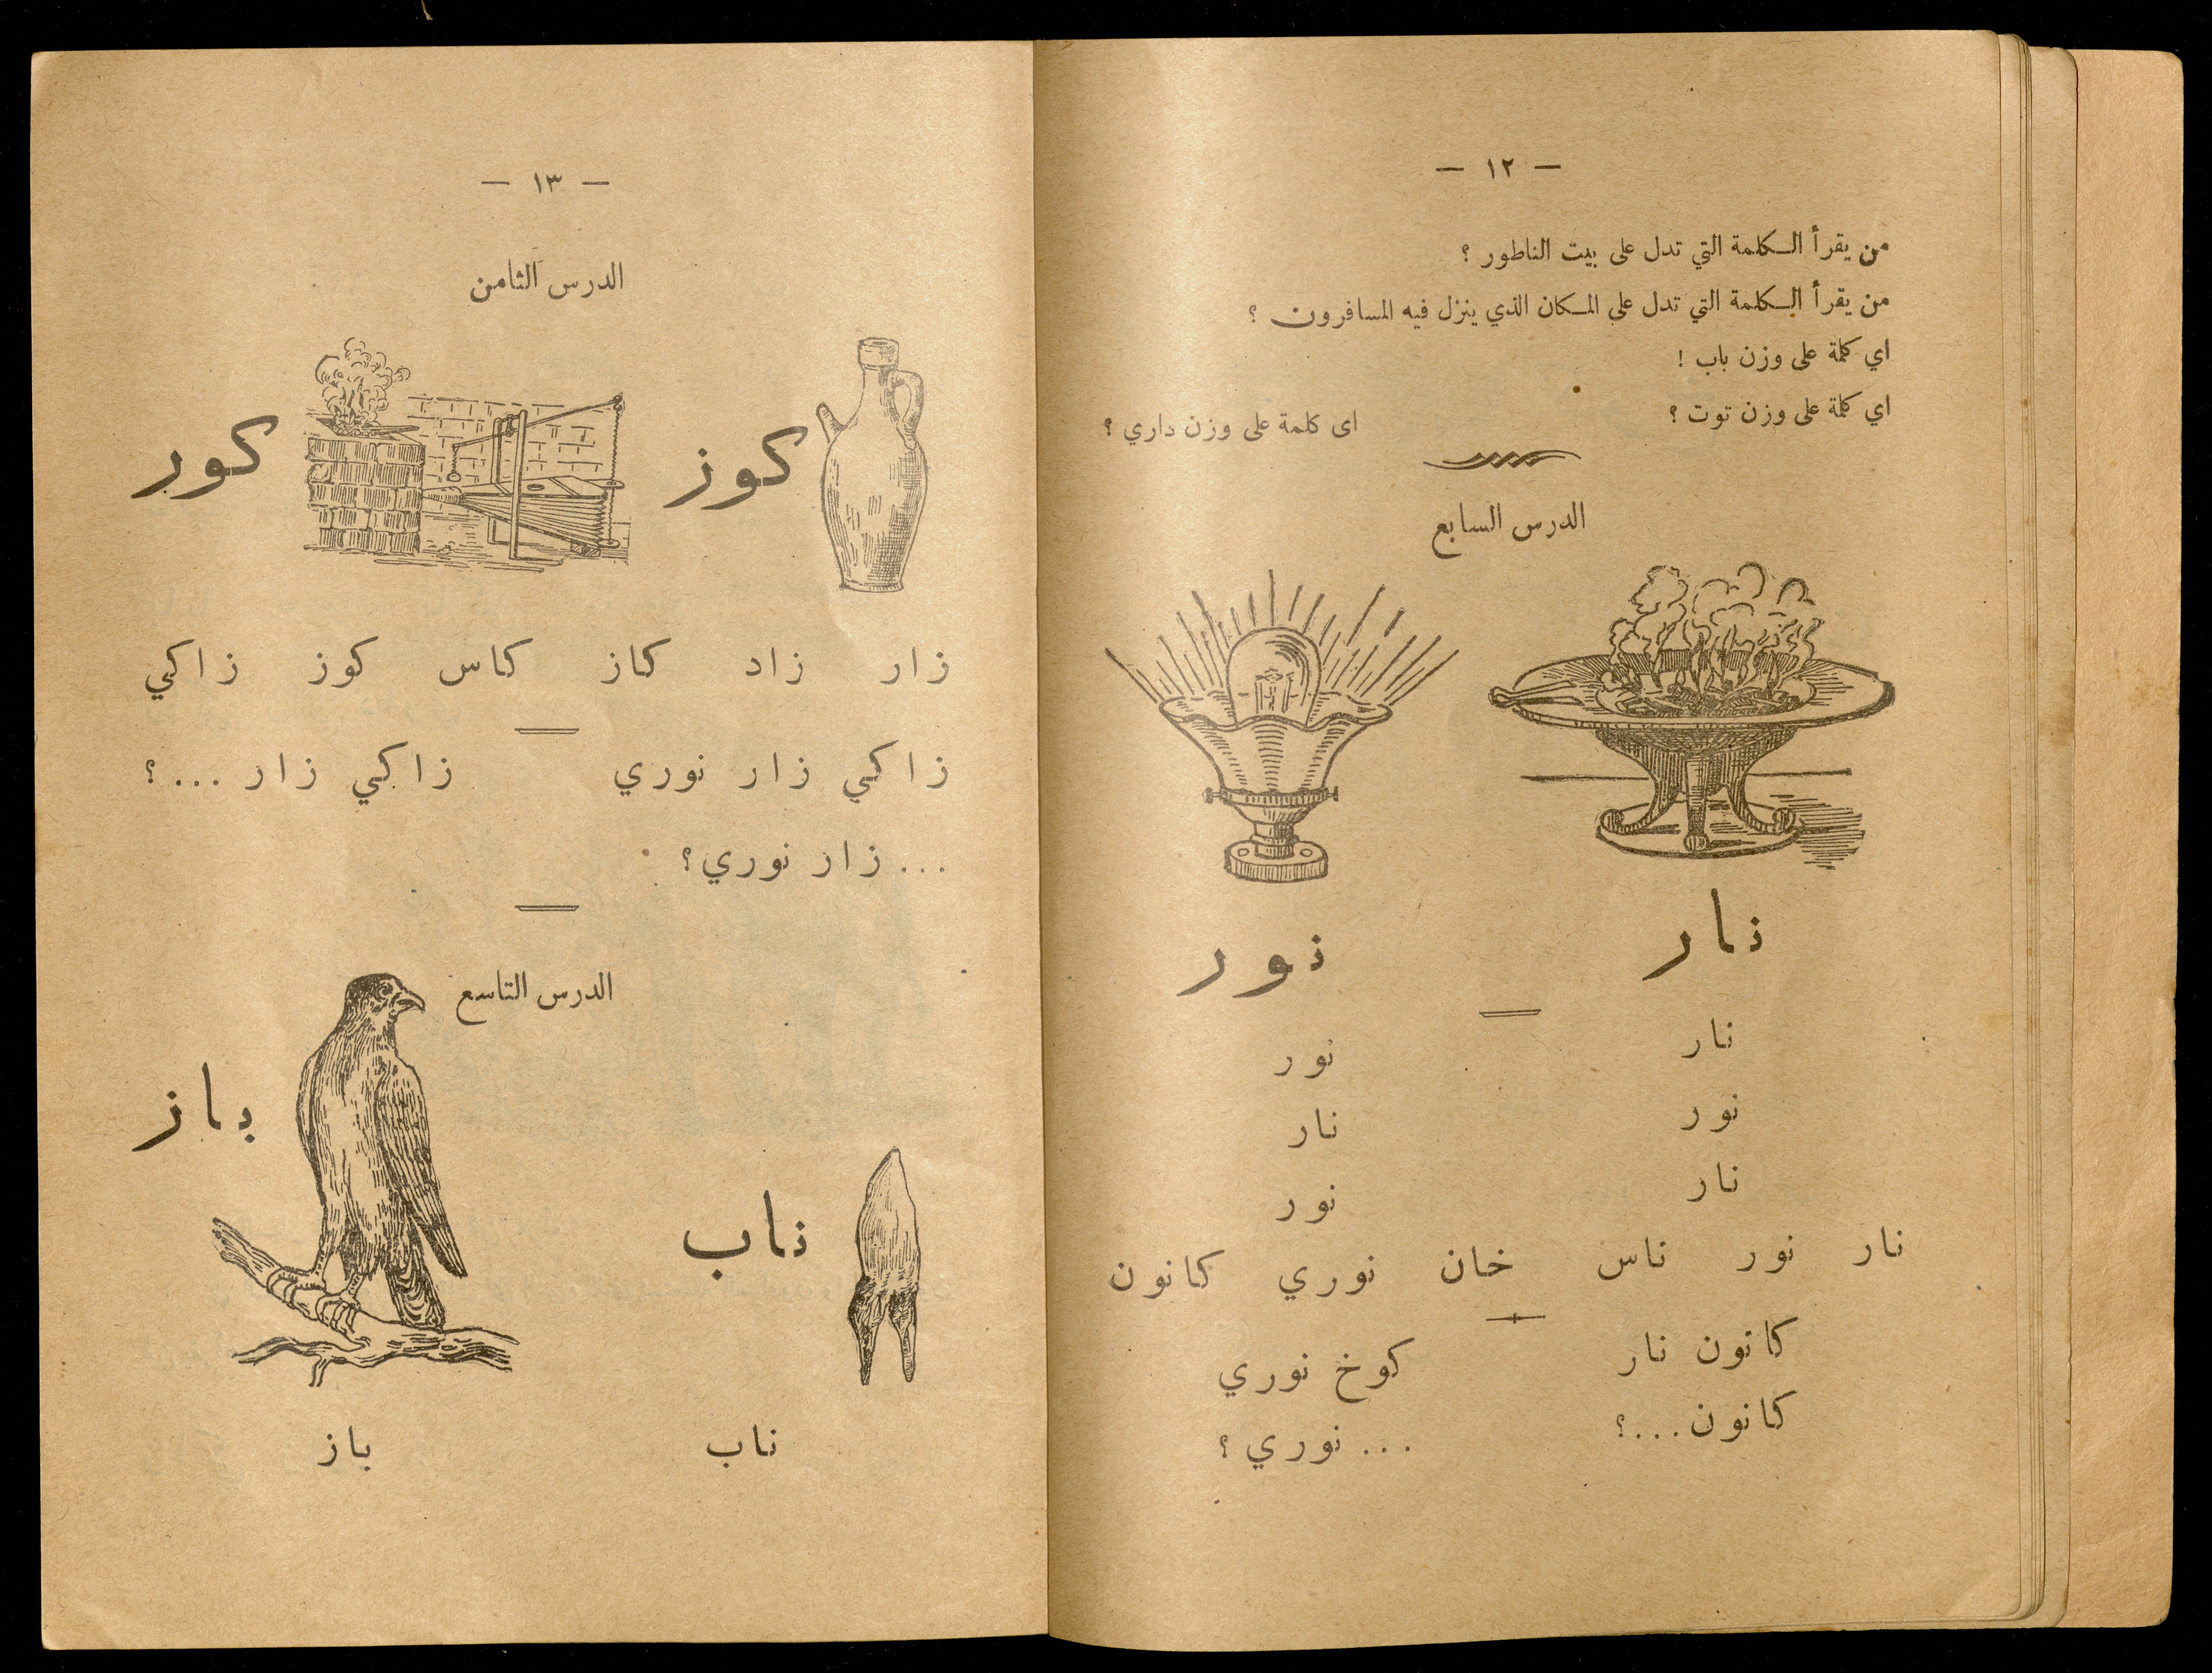 — ١٢ —
من يقرأ الكلمة التي تدل على بيت الناطور ؟
من يقرأ الكلمة التي تدل على المكان الذي ينزل فيه المسافرون ؟
اي كلمة على وزن باب !
اي كلمة على وزن توت ؟ اى كلمة على وزن داري ؟
الدرس السابع
نار نور
نار نور
نور نار
نار نور
نار نور ناس خان نوري كانون
كانون نار كوخ نوري
كانون...؟ ... نوري ؟
— ١٣ —
الدرس الثامن
كوز كور
زار زاد كاز كاس كوز زاكي
زاكي زار نوري زاكي زار ...؟
... زار نوري؟
الدرس التاسع
باز
ناب
ناب باز